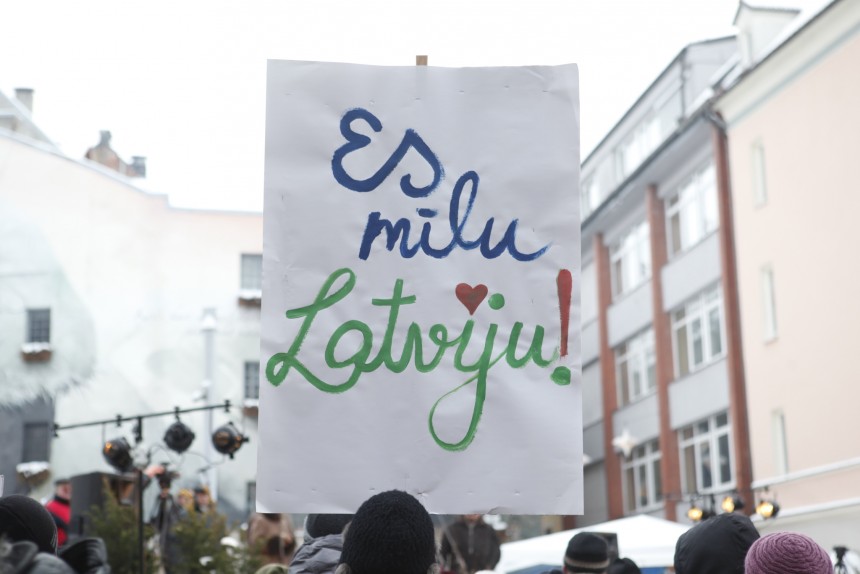 Es
mīlu
Latviju!